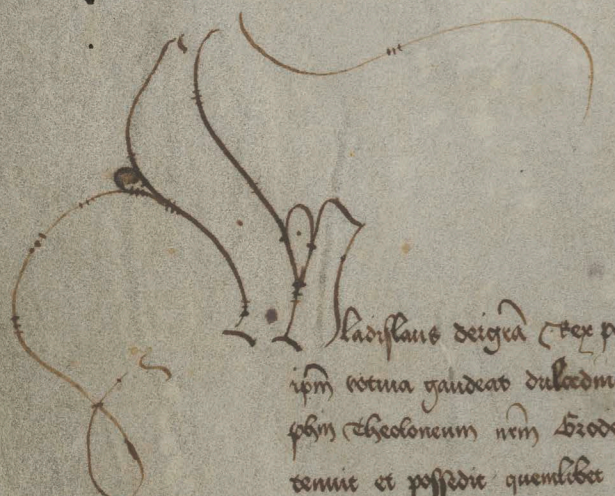 Wladislaus deigrã Rex p
ipm̃ votiua gaudeat
phm̃ Theoloneum nr̃m Grode
tenuit et possedit quemlibet